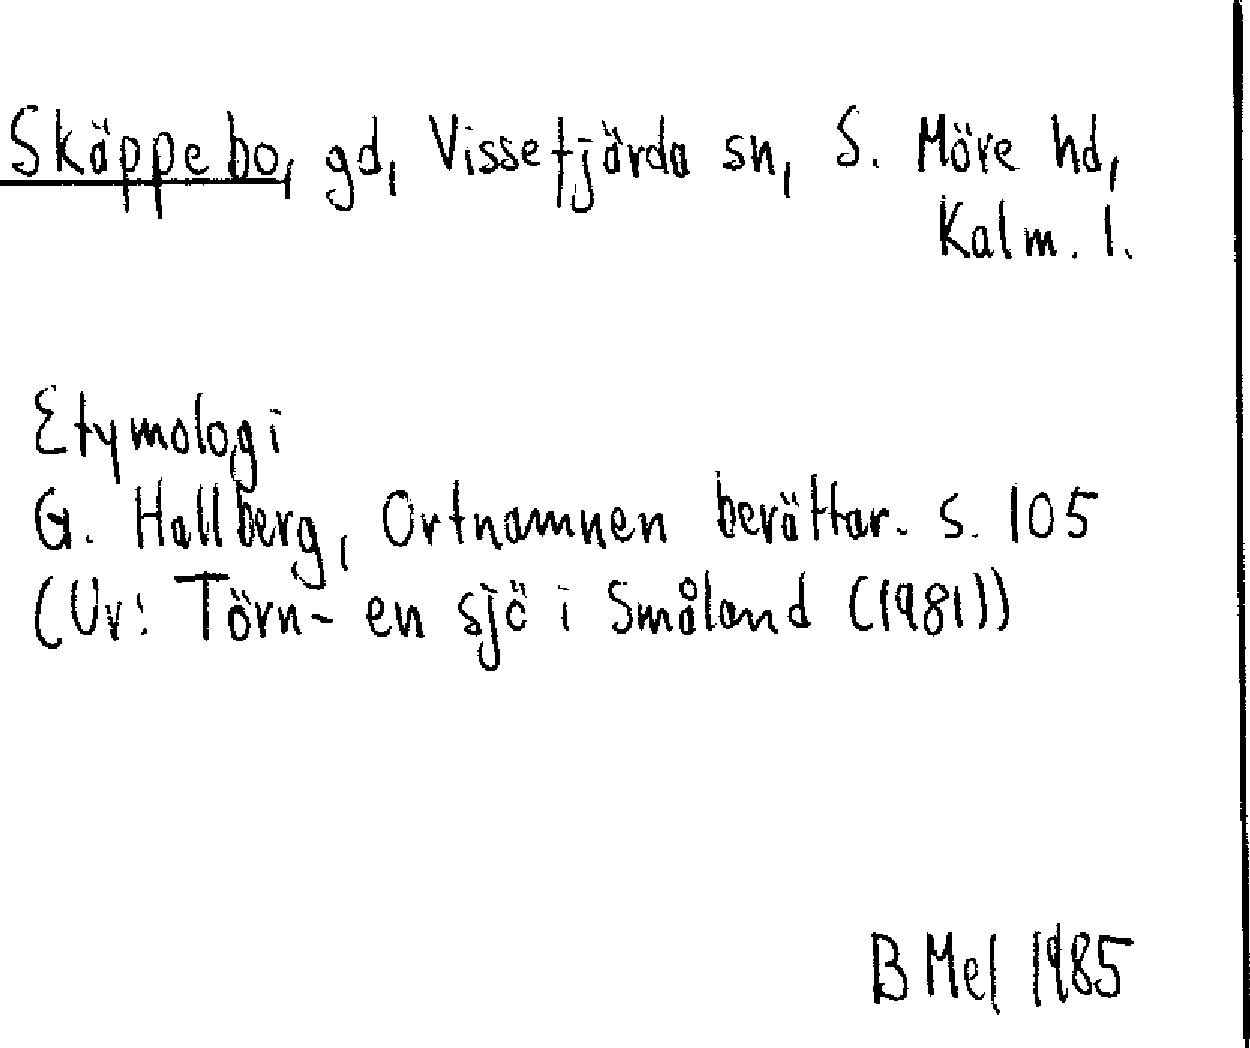 Skäppebo, gd, Vissefjärda sn, S. Möre hd,
Kalm. l.
Etymologi
G. Hallberg, Ortnamnen berättar. S. 105
(Ur: Törn- en sjö i Småland (1981))
B Mel 1985